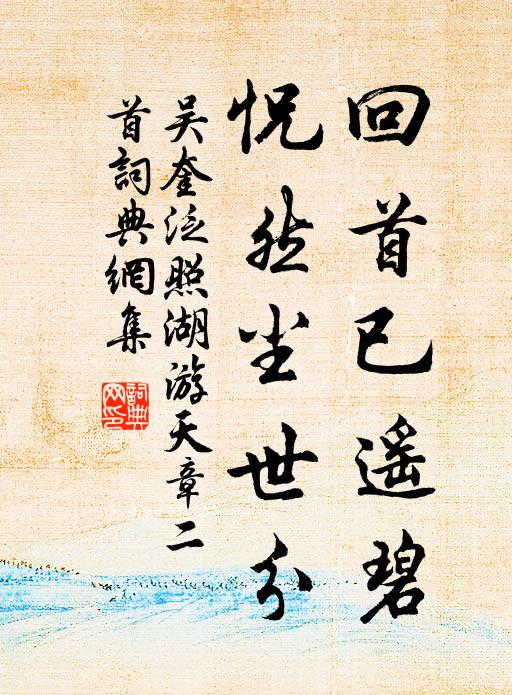 回首已遥碧
怳然尘世分
吴奎泛照湖游天章二
首词典網集
詞典
网印